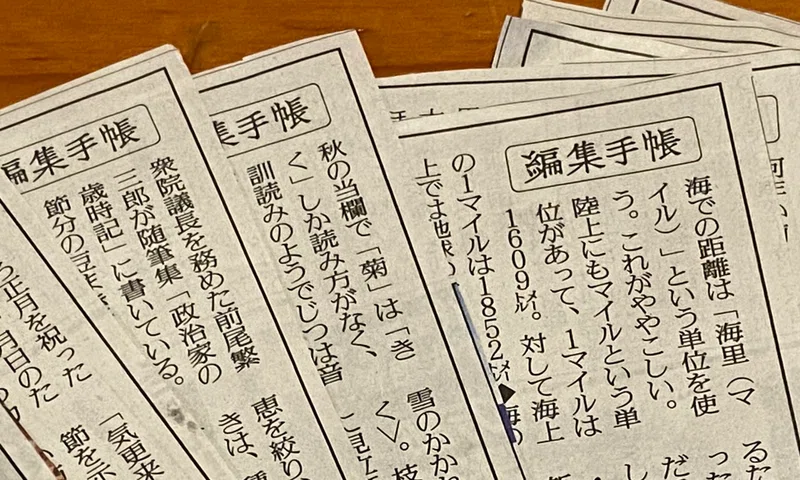 編集手帳
海での距離は「海里（マ
イル）」という単位を使
う。これがややこしい。
陸上にもマイルという単
位があって、1マイルは
1609㍍。対して海上
の1マイルは1852㍍
上では地球の
◆海の
集手帳
秋の当欄で「菊」は「き
く」しか読み方がなく、
訓読みのようでじつは音
雪のかか
く〉。枝
編集手帳
衆院議長を務めた前尾繁
三郎が随筆集「政治家の
歳時記」に書いている。
節分の
恵を絞り
きは、
正月を祝った
月日のた
「気更来
節を示